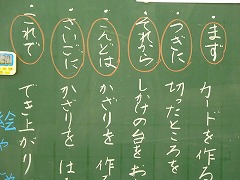 ・まず カードを作る
・つぎに 切ったところを
・それから しかけの台をお
・こんどは かざりを作
・さいごに かざりをは
・これで でき上がり
絵や